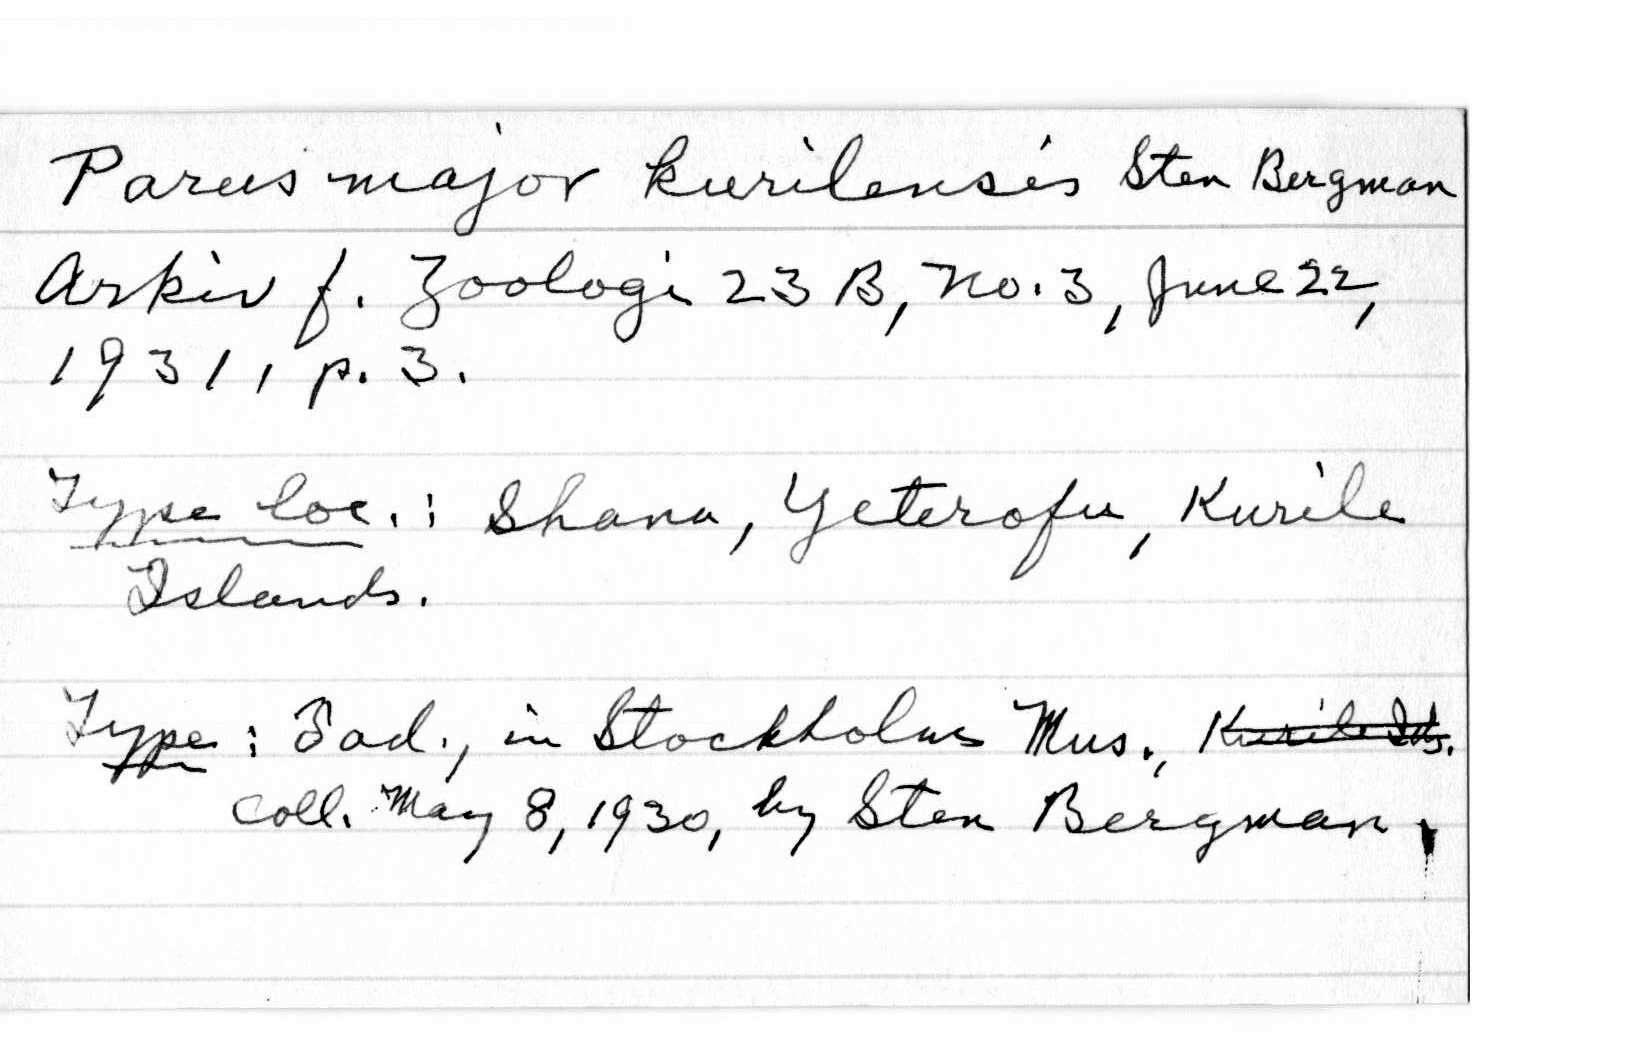 Parus major kurilensis Sten Bergman
Arkiv f. Zoologi 23 B, No. 3, June 22,
1931, p. 3.
Type loc.: Shana, Yeterofu, Kurile
Islands.
Type: ad., in Stockholms Mus., Kurile Ids.
coll. May 8, 1930, by Sten Bergman.